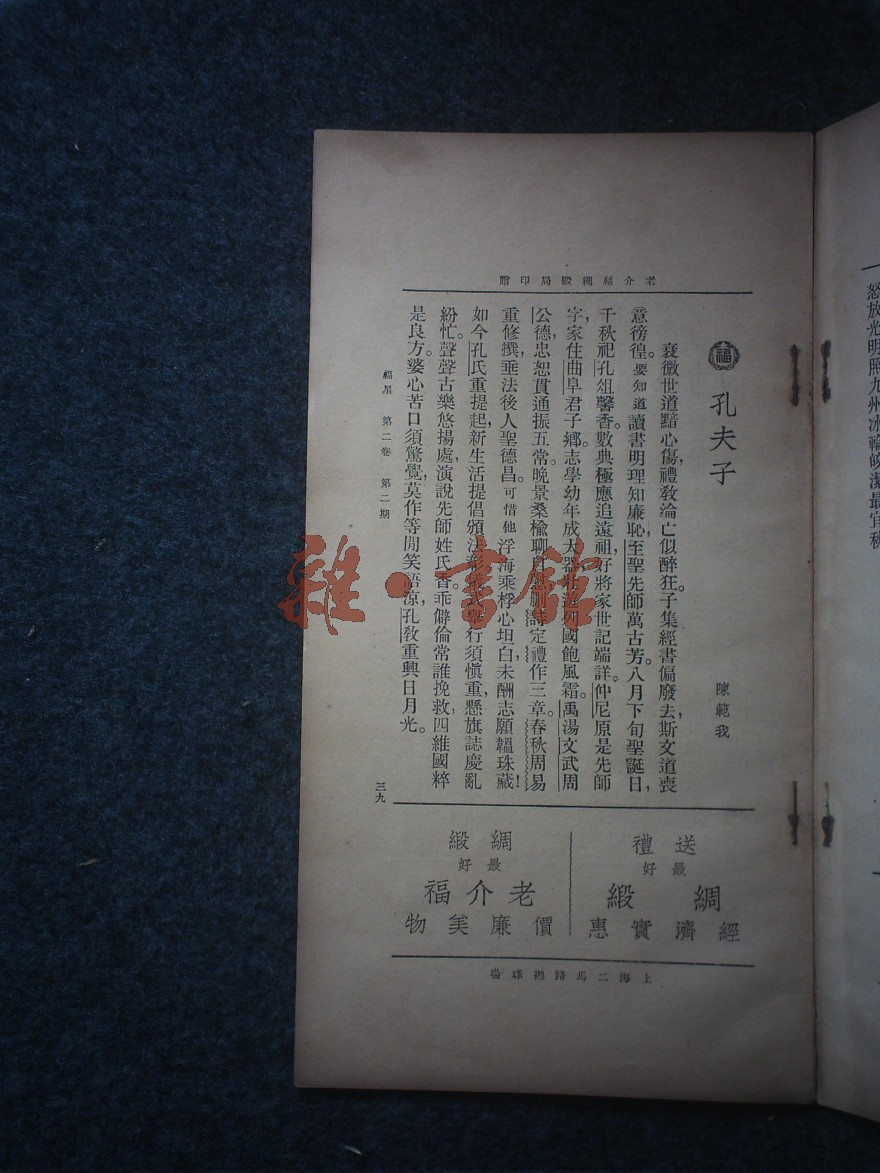 老介福綢緞局印贈
福
孔夫子
陳範我
衰微世道黯心傷，禮敎淪亡似醉狂。子集經書偏廢去，斯文道喪
意徬徨。要知道讀書明理知廉恥，至聖先師萬古芳。八月下旬聖誕日，
千秋祀孔俎馨香。數典極應追遠祖，好將家世記端詳。仲尼原是先師
字，家住曲阜君子鄉。志學幼年成大器，壯遊列國飽風霜。禹湯文武周
公德，忠恕貫通振五常。晚景桑榆聊自慰，刪詩定禮作三章。春秋周易
重修撰，垂法後人聖德昌。可惜他浮海乘桴心坦白，未酬志願韞珠藏！
如今孔氏重提起，新生活提倡頒法
行須愼重，懸旗誌慶亂
紛忙。聲聲古樂悠揚處，演說先師姓氏香。乖僻倫常誰挽救，四維國粹
是良方。婆心苦口須驚覺，莫作等閒笑語涼，孔敎重興日月光。
福星 第二卷 第二期
三九
送禮
最好
綢緞
經濟實惠
綢緞
最好
老介福
價廉美物
上海二馬路抛球場
怒放光明照九州冰輪皎潔最宜秋
雜·書館